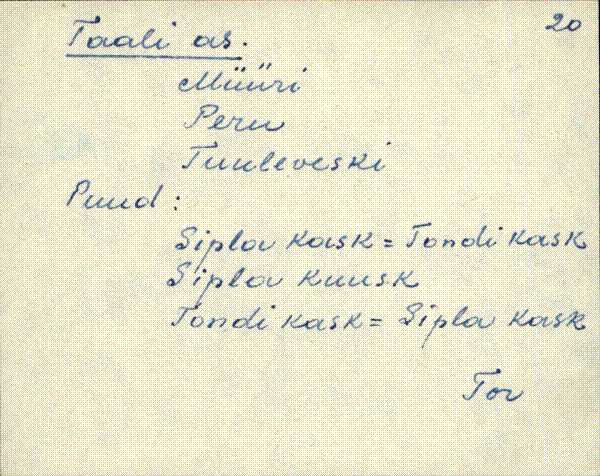 20
Taali as.
Müüri
Peru
Tuuleveski
Puud:
Sipla kask = Tondi kask
Sipla kuusk
Tondi kask = Sipla kask
Tor